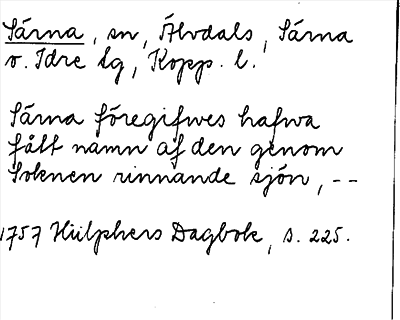 Särna, sn, Älvdals, Särna
o. Idre lg, Kopp. l.
Särna föregifwes hafwa
fått namn af den genom
Soknen rinnande sjön, --
1757 Hülphers Dagbok, s. 225.